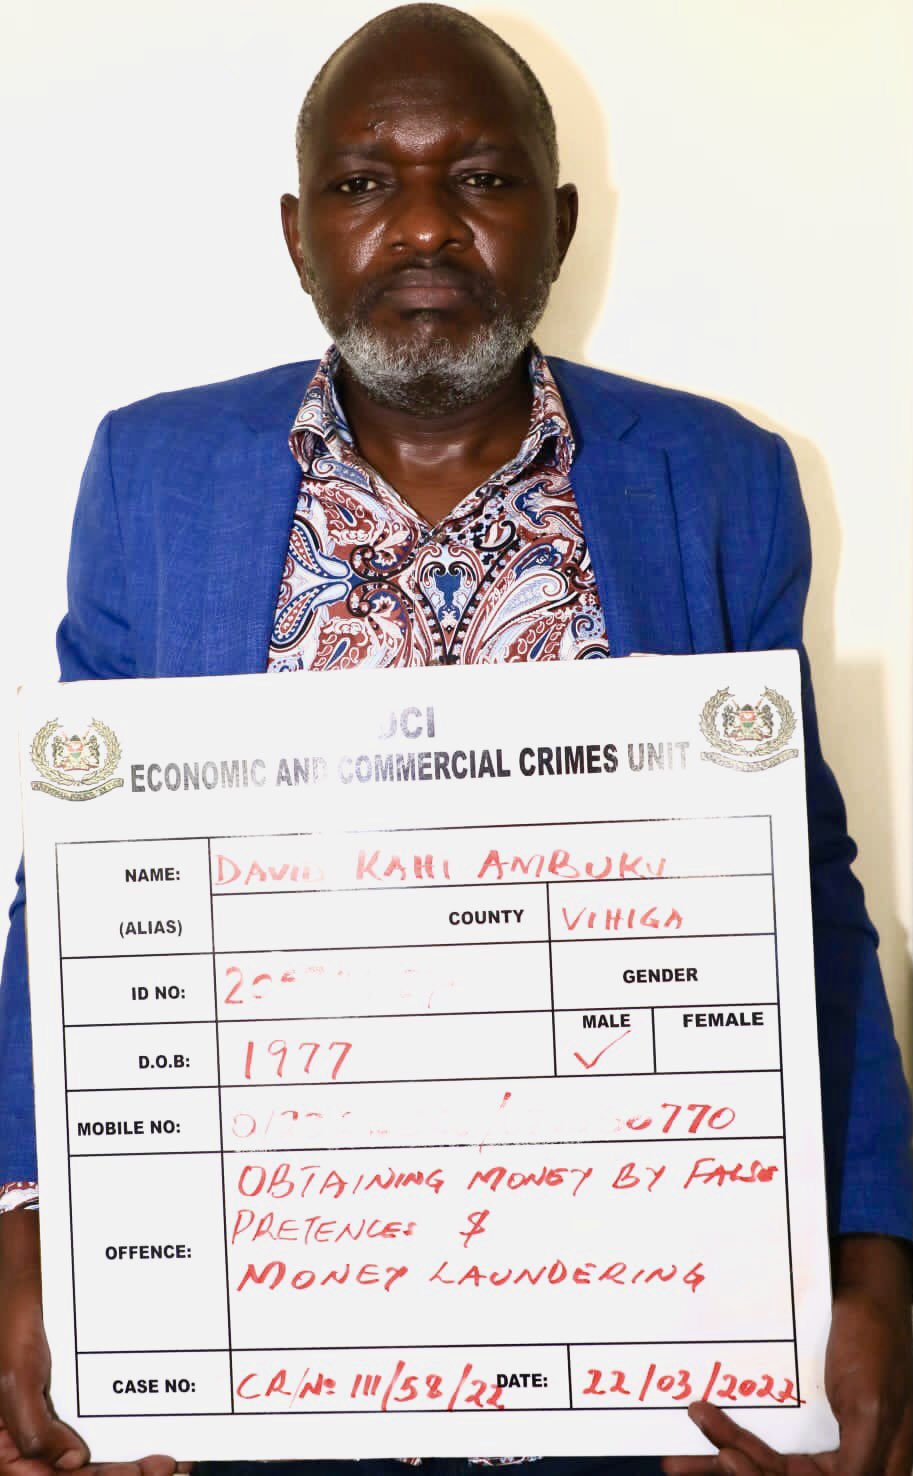 DCI
ECONOMIC AND COMMERCIAL CRIMES UNIT
NAME: DAVID KAHI AMBUKU
(ALIAS) COUNTY VIHIGA
ID NO: GENDER
MALE FEMALE
D.O.B: 1977 ✓
MOBILE NO:
OBTAINING MONEY BY FALSE
PRETENCES &
OFFENCE: MONEY LAUNDERING
CASE NO: CR/No 111/58/22 DATE: 22/03/2022